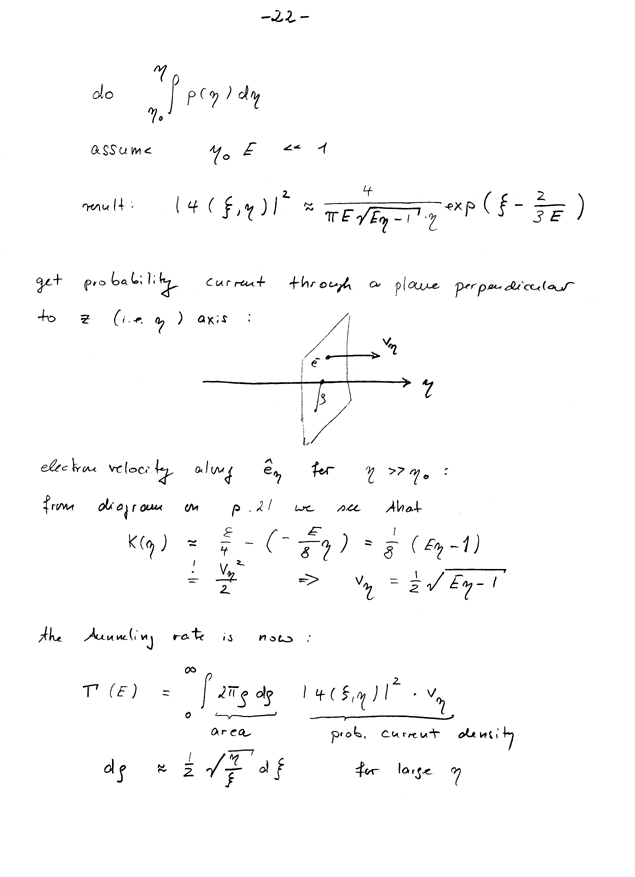 -22-
do ∫_{η₀}^{η} p(η) dη
assume η₀ E << 1
result: |ψ(ξ,η)|² ≈ 4 / (π E √(Eη-1) · η) exp(ξ - 2/(3E))
get probability current through a plane perpendicular
to z (i.e. η) axis :
e⁻ v_η
η
ρ
electron velocity along ê_η for η >> η₀ :
from diagram on p. 21 we see that
K(η) ≈ ε/4 - (- E/8 η) = 1/8 (Eη-1)
=! v_η²/2 => v_η = 1/2 √(Eη-1)
the tunneling rate is now :
Γ(E) = ∫₀^∞ 2πρ dρ |ψ(ξ,η)|² · v_η
area prob. current density
dρ ≈ 1/2 √(η/ξ) dξ for large η